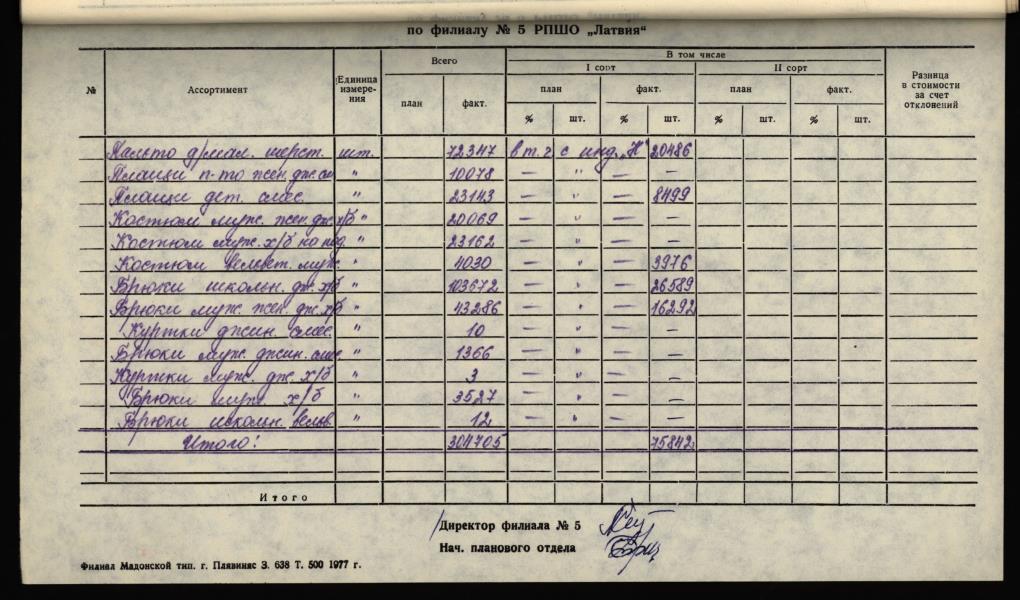 по филиалу № 5 РПШО „Латвия“
№ Ассортимент Единица измерения Всего В том числе Разница в стоимости за счет отклонений
I сорт II сорт
план факт. план факт. план факт.
% шт. % шт. % шт. % шт.
Пальто д/мал. шерст. шт. 72347 в т.ч с инд. „Н" 20486
Плащи п-то жен. дж. см " 10078 — " — —
Плащи дет. смес. " 23143 — " — 8499
Костюм муж. жен. дж х/б " 20069 — " — —
Костюм муж. х/б на под. " 23162 — " — —
Костюм вельвет. муж. " 4030 — " — 3976
Брюки школьн. дж. х/б " 103672 — " — 26589
Брюки муж. жен. дж. х/б " 43286 — " — 16292
Куртки джин. смес. " 10 — " — —
Брюки муж. джин. смес. " 1366 — " — —
Куртки муж. дж. х/б " 3 — " — —
Брюки муж. х/б " 3527 — " — —
Брюки школьн. вельв. " 12 — " — —
Итого: 304705 75842
Итого
Директор филиала № 5
Нач. планового отдела
Филиал Мадонской тип. г. Плявиняс З. 638 Т. 500 1977 г.